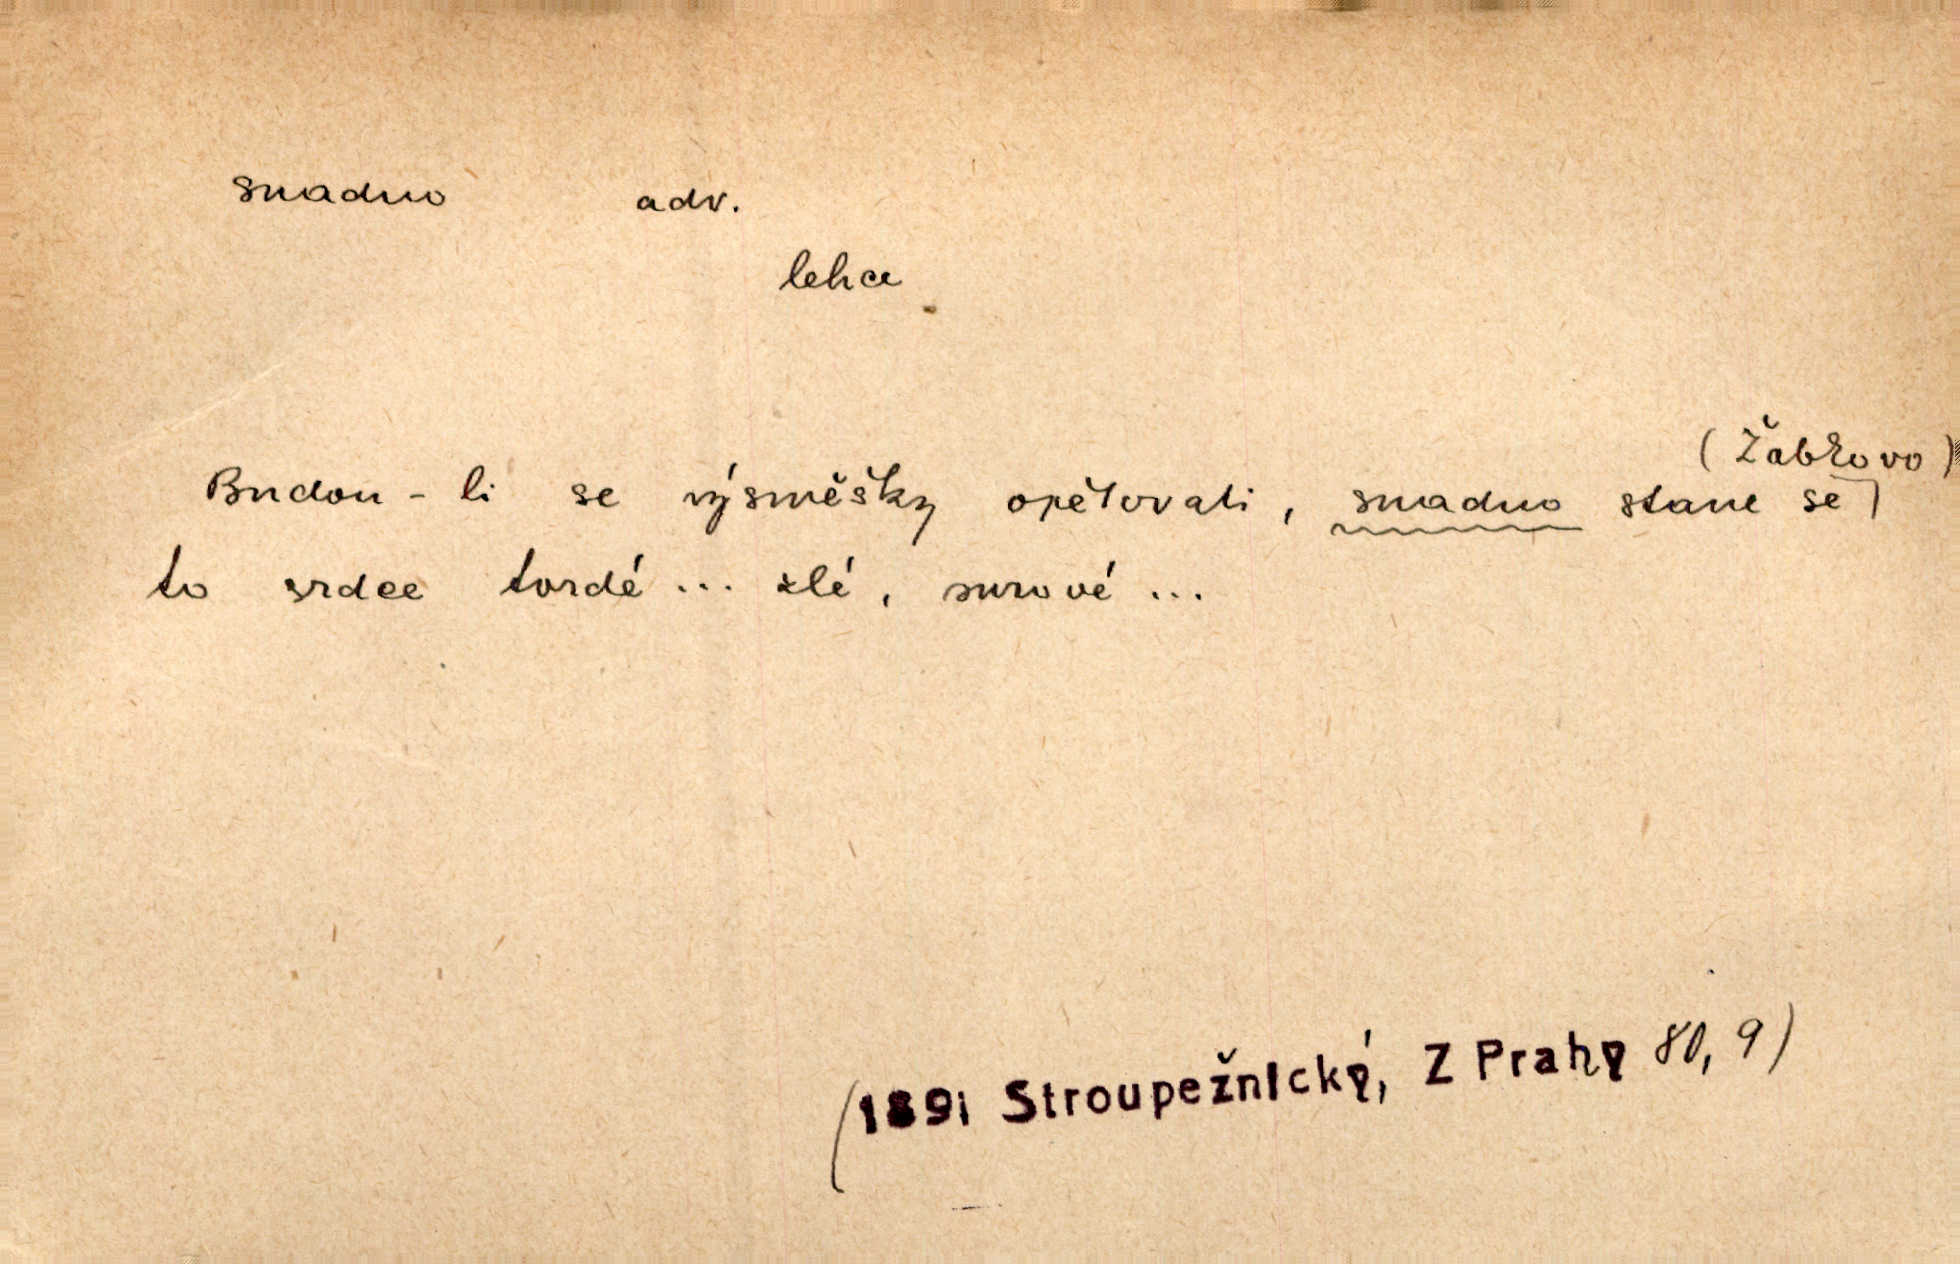 snadno adv.
lehce
(Žabkovo)
Budou-li se výsměšky opětovati, snadno stane se
to srdce tvrdé... zlé, surové...
(1891 Stroupežnický, Z Prahy 80, 9)